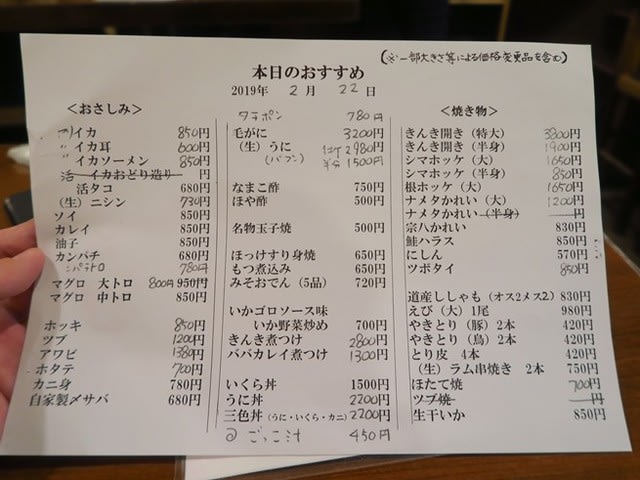 (※一部大きさ等による価格変更品を含む)
本日のおすすめ
2019年 2月 22日
<おさしみ>
イカ 850円
〃イカ耳 600円
〃イカソーメン 850円
活 イカおどり造り 円
活タコ 680円
(生)ニシン 730円
ソイ 850円
カレイ 850円
油子 850円
カンパチ 680円
780円
マグロ 大トロ 800円 950円
マグロ 中トロ 850円
ホッキ 850円
ツブ 1200円
アワビ 1380円
ホタテ 700円
カニ身 780円
自家製〆サバ 680円
タチポン 780円
毛がに 3200円
(生)うに 2980円
(バフン) 半分1500円
なまこ酢 750円
ほや酢 500円
名物玉子焼 500円
ほっけすり身焼 650円
もつ煮込み 650円
みそおでん(5品) 720円
いかゴロソース味
いか野菜炒め 700円
きんき煮つけ 2800円
ババカレイ煮つけ 1300円
いくら丼 1500円
うに丼 2200円
三色丼(うに・いくら・カニ) 2200円
ごっこ汁 450円
<焼き物>
きんき開き(特大) 3800円
きんき開き(半身) 1900円
シマホッケ(大) 1650円
シマホッケ(半身) 850円
根ホッケ(大) 1650円
ナメタかれい(大) 1200円
ナメタかれい(半身) 円
宗八かれい 830円
鮭ハラス 850円
にしん 570円
ツボタイ 850円
道産ししゃも(オス2メス2) 830円
えび(大)1尾 980円
やきとり(豚)2本 420円
やきとり(鳥)2本 420円
とり皮 4本 420円
(生)ラム串焼き 2本 750円
ほたて焼 700円
ツブ焼 円
生干いか 850円